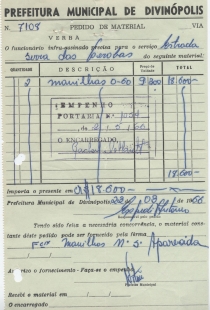 PREFEITURA MUNICIPAL DE DIVINÓPOLIS
N. 7108 PEDIDO DE MATERIAL VIA
VERBA
O funcionário infra-assinado precisa para o serviço Estrada
Serra das do seguinte material:
QUANTIDADE DESCRIÇÃO Preço da Unidade TOTAL
2 manilhas 0-60 9.300 18.600-
EMPENHO
PORTARIA N.
O ENCARREGADO
18.600-
Importa o presente em 18.600-
Prefeitura Municipal de Divinópolis, 22/ 03/ 1966
Tendo sido feita a necessária concorrência, o material constante
dêste pedido pode ser fornecido pela firma
Manilhas N. S. Aparecida
Autorizo o fornecimento - Faça-se o empenho
Prefeito Municipal
Recebi o material em / / de
O encarregado